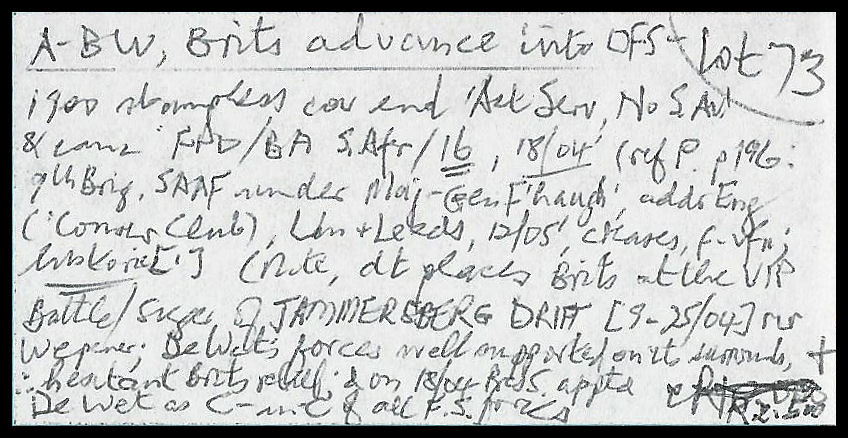 A-BW, Brits advance into OFS - Lot 73
1900 stampless cov end 'Act Serv, No S. Av'
& canc FPO/BA S.Afr/16, 18/04' (ref P. p196:
9th Brig, SAFF under Maj-Gen F'haugh', addr Eng
('Conserv Club), Ldn + Leeds, 12/05', creases, f-vfn;
historic[!] (Note, dt places Brits at the VIP
Battle/Siege of JAMMERSBERG DRIFT [9-25/04] nr
Wepener; De Wet's forces well supported on its surrounds, +
hesitant Brits relief; & on 18/04 Pres S. appts
De Wet as C-in-C of all F.S. forces R2.500